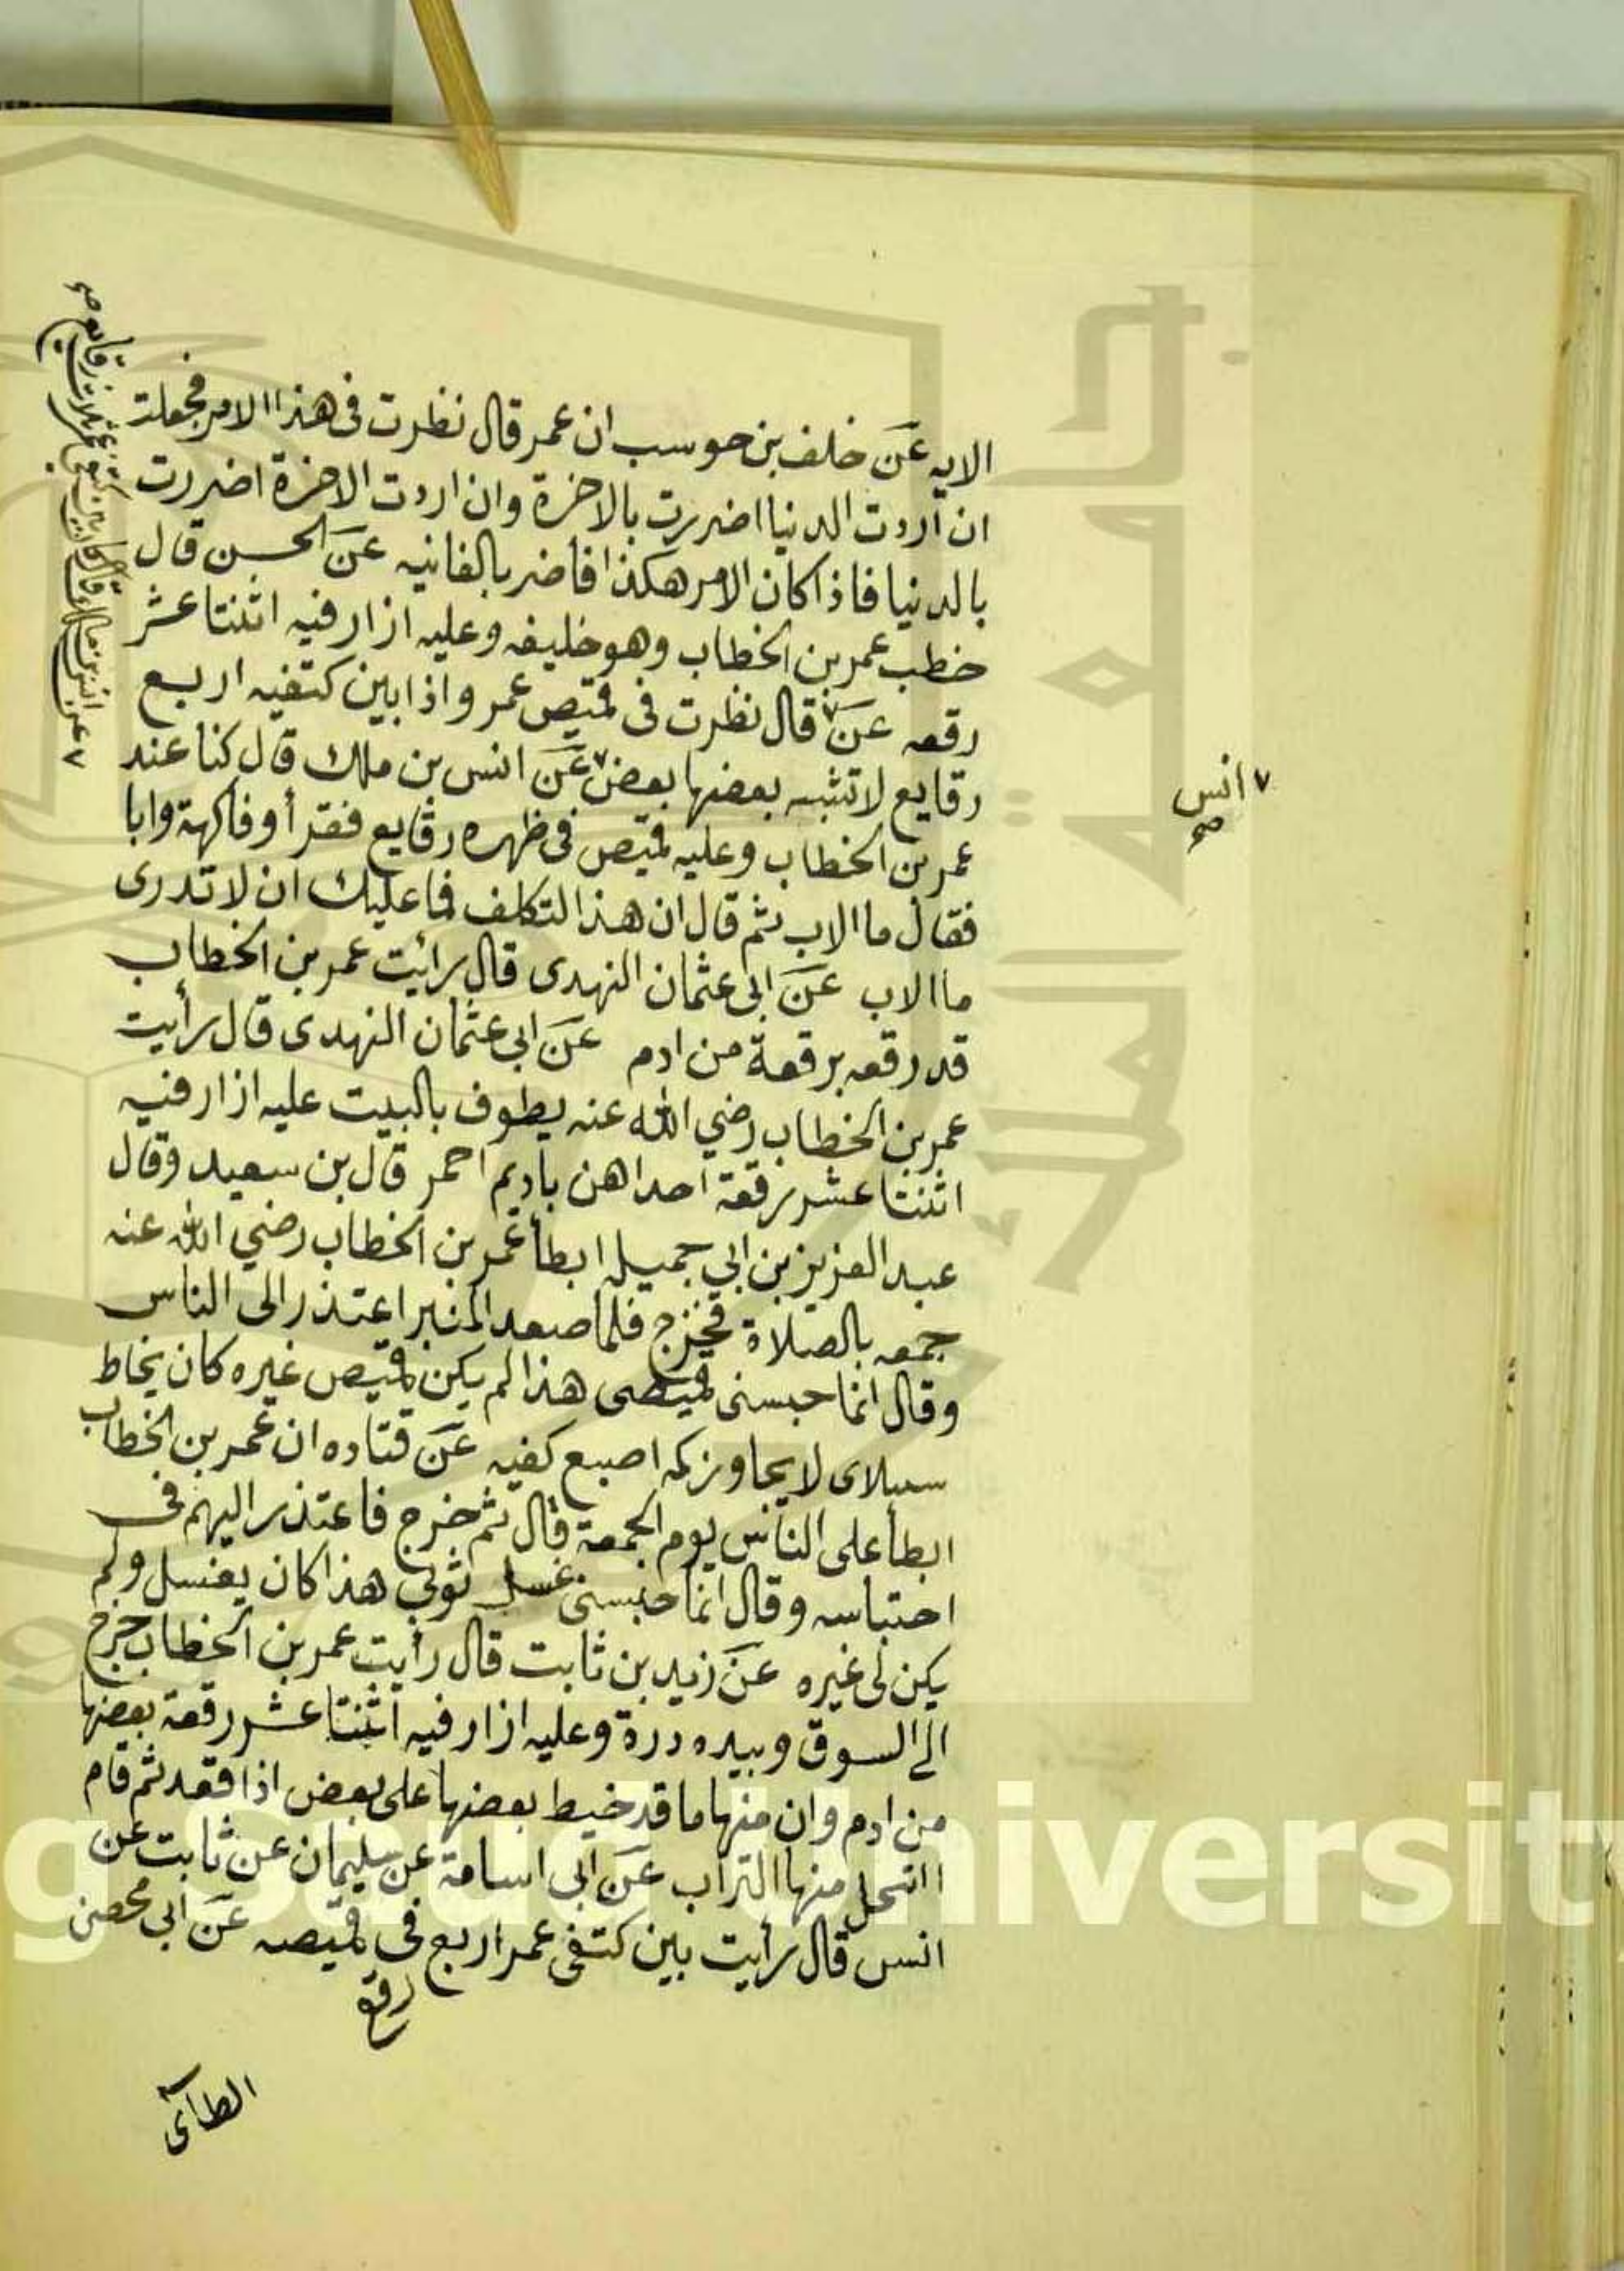 الايه عن خلف بن حوسب ان عمر قال نظرت فى هذا الامر فجعلت
ان اردت الدنيا اضررت بالاخرة وان اردت الاخرة اضررت
بالدنيا فاذا كان الامر هكذا فاضر بالفانيه عن الحسن قال
خطب عمر بن الخطاب وهو خليفه وعليه ازار فيه اثنتا عشر
رقعه عن قال نظرت فى قميص عمر واذا بين كتفيه اربع
رقايع لا تشبه بعضها بعض عن انس بن ملك قال كنا عند
عمر بن الخطاب وعليه قميص فى ظهره رقايع فقرأ وفاكهة وابا
فقال ما الاب ثم قال ان هذا لتكلف فما عليك ان لا تدرى
ما الاب عن ابى عثمان النهدى قال رائيت عمر بن الخطاب
قد رقعه برقعة من ادم عن ابي عثمان النهدى قال رأيت
عمر بن الخطاب رضي الله عنه يطوف بالبيت عليه ازار فيه
اثنتا عشر رقعة احداهن باديم احمر قال بن سعيد وقال
عبد العزيز بن ابي جميله ابطأ عمر بن الخطاب رضي الله عنه
جمعه بالصلاة فخرج فلما صعد المنبر اعتذر الى الناس
وقال انما حبسنى قميصى هذا لم يكن قميص غيره كان يخاط
لا يجاوز كمه اصبع كفيه عن قتاده ان عمر بن الخطاب
ابطأ على الناس يوم الجمعة قال ثم خرج فاعتذر اليهم فى
احتباسه وقال انما حبسنى غسل ثوبي هذا كان يغسل ولم
يكن لى غيره عن زيد بن ثابت قال رأيت عمر بن الخطاب خرج
الى السوق وبيده درة وعليه ازار فيه اثنتا عشر رقعة بعضها
من ادم وان منها ما قد خيط بعضها على بعض اذا قعد ثم قام
انتحل منها التراب عن ابى اسامة عن سليمان عن ثابت عن
انس قال رأيت بين كتفى عمر اربع فى قميصه عن ابى محصن
رقع
الطآى
٧ انس
صح